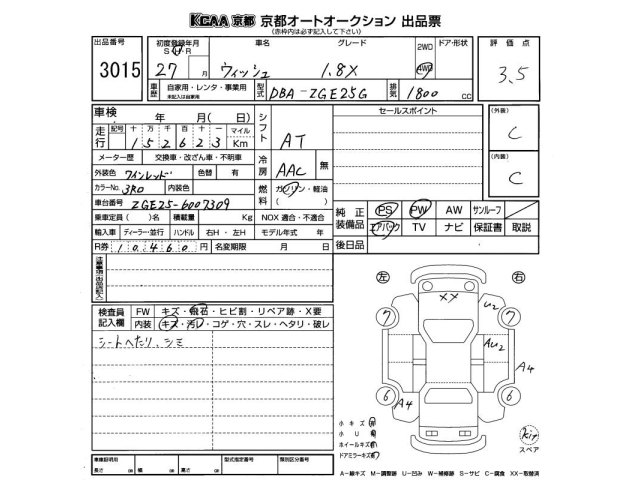 KCAA 京都 京都オートオークション 出品票
(赤枠内は必ず記入して下さい)
出品番号 初度登録年月 車名 グレード 2WD ドア・形状 評価点
S H R
3015 27 月 ウィッシュ 1.8X 4WD 3.5
車歴 自家用・レンタ・事業用 型式 DBA-ZGE25G 排気 1800 CC
未記入は自家用
車検 年 月( 日) シフト AT セールスポイント (外装)
走行 記号 十 万 千 百 十 一 マイル C
152623 Km
メーター歴 交換車・改ざん車・不明車 冷房 AAC 無 (内装)
外装色 ワインレッド 色替 有 C
カラーNo. 3R0 内装色 燃料 ガソリン・軽油
( )
車台番号 ZGE25-6007309
乗車定員 ( )名 積載量 Kg NOX 適合・不適合 純正装備品 PS PW AW サンルーフ
輸入車 ディーラー・並行 ハンドル 右H・左H モデル年式 年 エアバック TV ナビ 保証書 取説
R券 10,460 円 名変期限 月 日 後日品
注意事項(出品店記入)
左 右
XX U2
7 7
AU2
A4
6 6
A4
検査員記入欄 FW キズ・飛石・ヒビ割・リペア跡・X要
内装 キズ・汚レ・コゲ・穴・スレ・ヘタリ・破レ
シートヘたり、シミ
小キズ 有
小U 有
ホイールキズ 有
ドアミラーキズ 有
kit
スペア
車庫証明用 型式指定番号 類別区分番号
長さ cm 幅 cm 高さ cm
A-線キズ M-調整跡 U-凹み W-補修跡 S-サビ C-腐食 XX-取替済